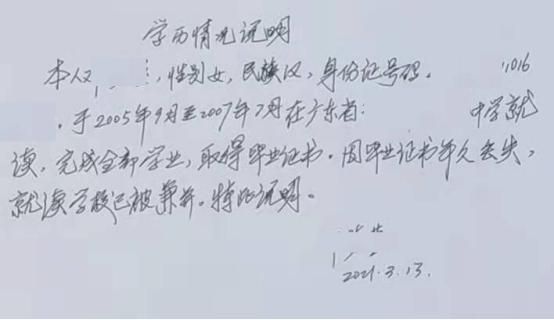 学历情况说明
本人 ，性别女，民族汉，身份证号码. 1016
.于2005年9月至2007年7月在广东省: 中学就
读，完成全部学业，取得毕业证书。因毕业证书年久丢失，
就读学校已被兼并。特此说明。
2021.3.13.